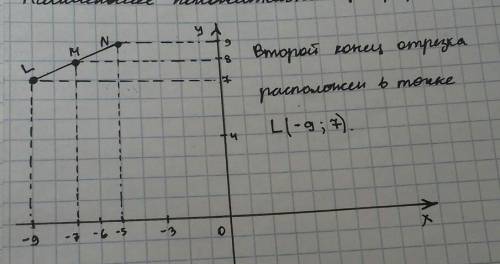 y
N 9
M 8
L 7
Второй конец отрезка
расположен в точке
L(-9; 7).
4
-9 -7 -6 -5 -3 0 x